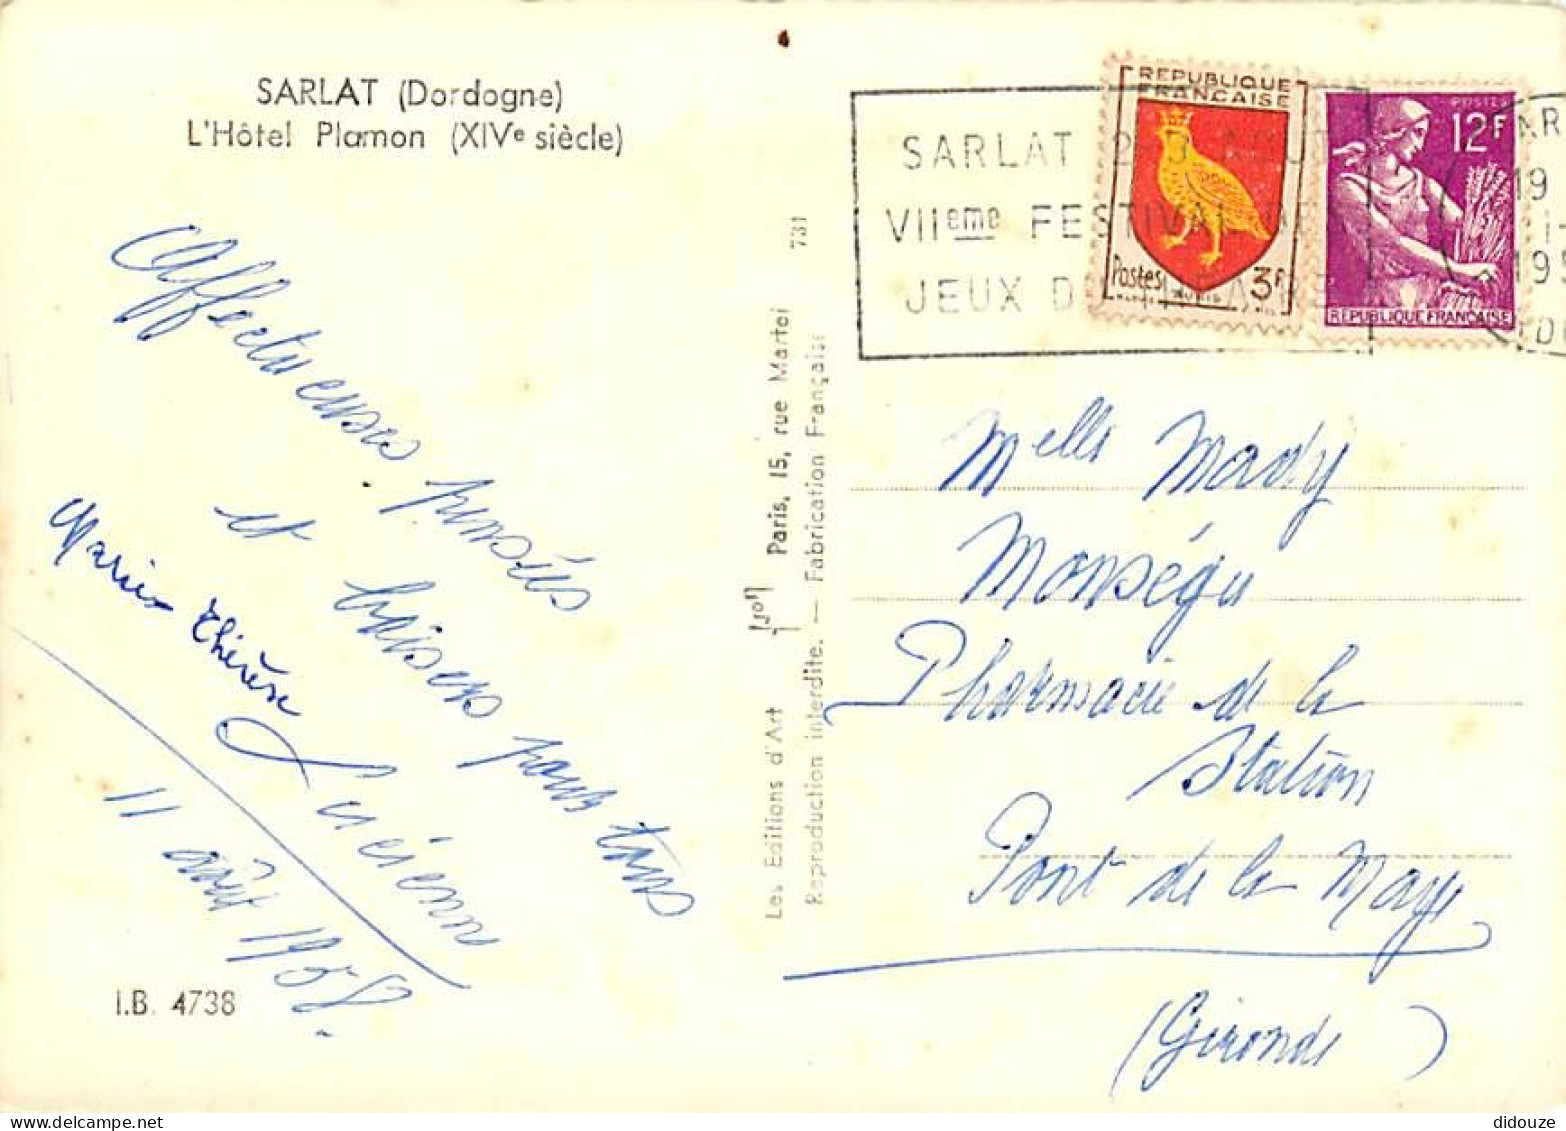 SARLAT (Dordogne)
L'Hôtel Plamon (XIVe siècle)
Affectueuses pensées
et baisers pour tous
Marie Thérèse
Lucienne
11 août 1958.
I.B. 4738
Les Editions d'Art Paris, 15, rue Martel 731
Reproduction interdite. — Fabrication Française
SARLAT
VIIeme FESTIVAL DES
JEUX DU THEATRE
REPUBLIQUE
FRANÇAISE
Postes 3F
POSTES
12F
REPUBLIQUE FRANÇAISE
Melle Mady
Monségu
Pharmacie de la
Station
Pont de la Maye
(Gironde)
didouze